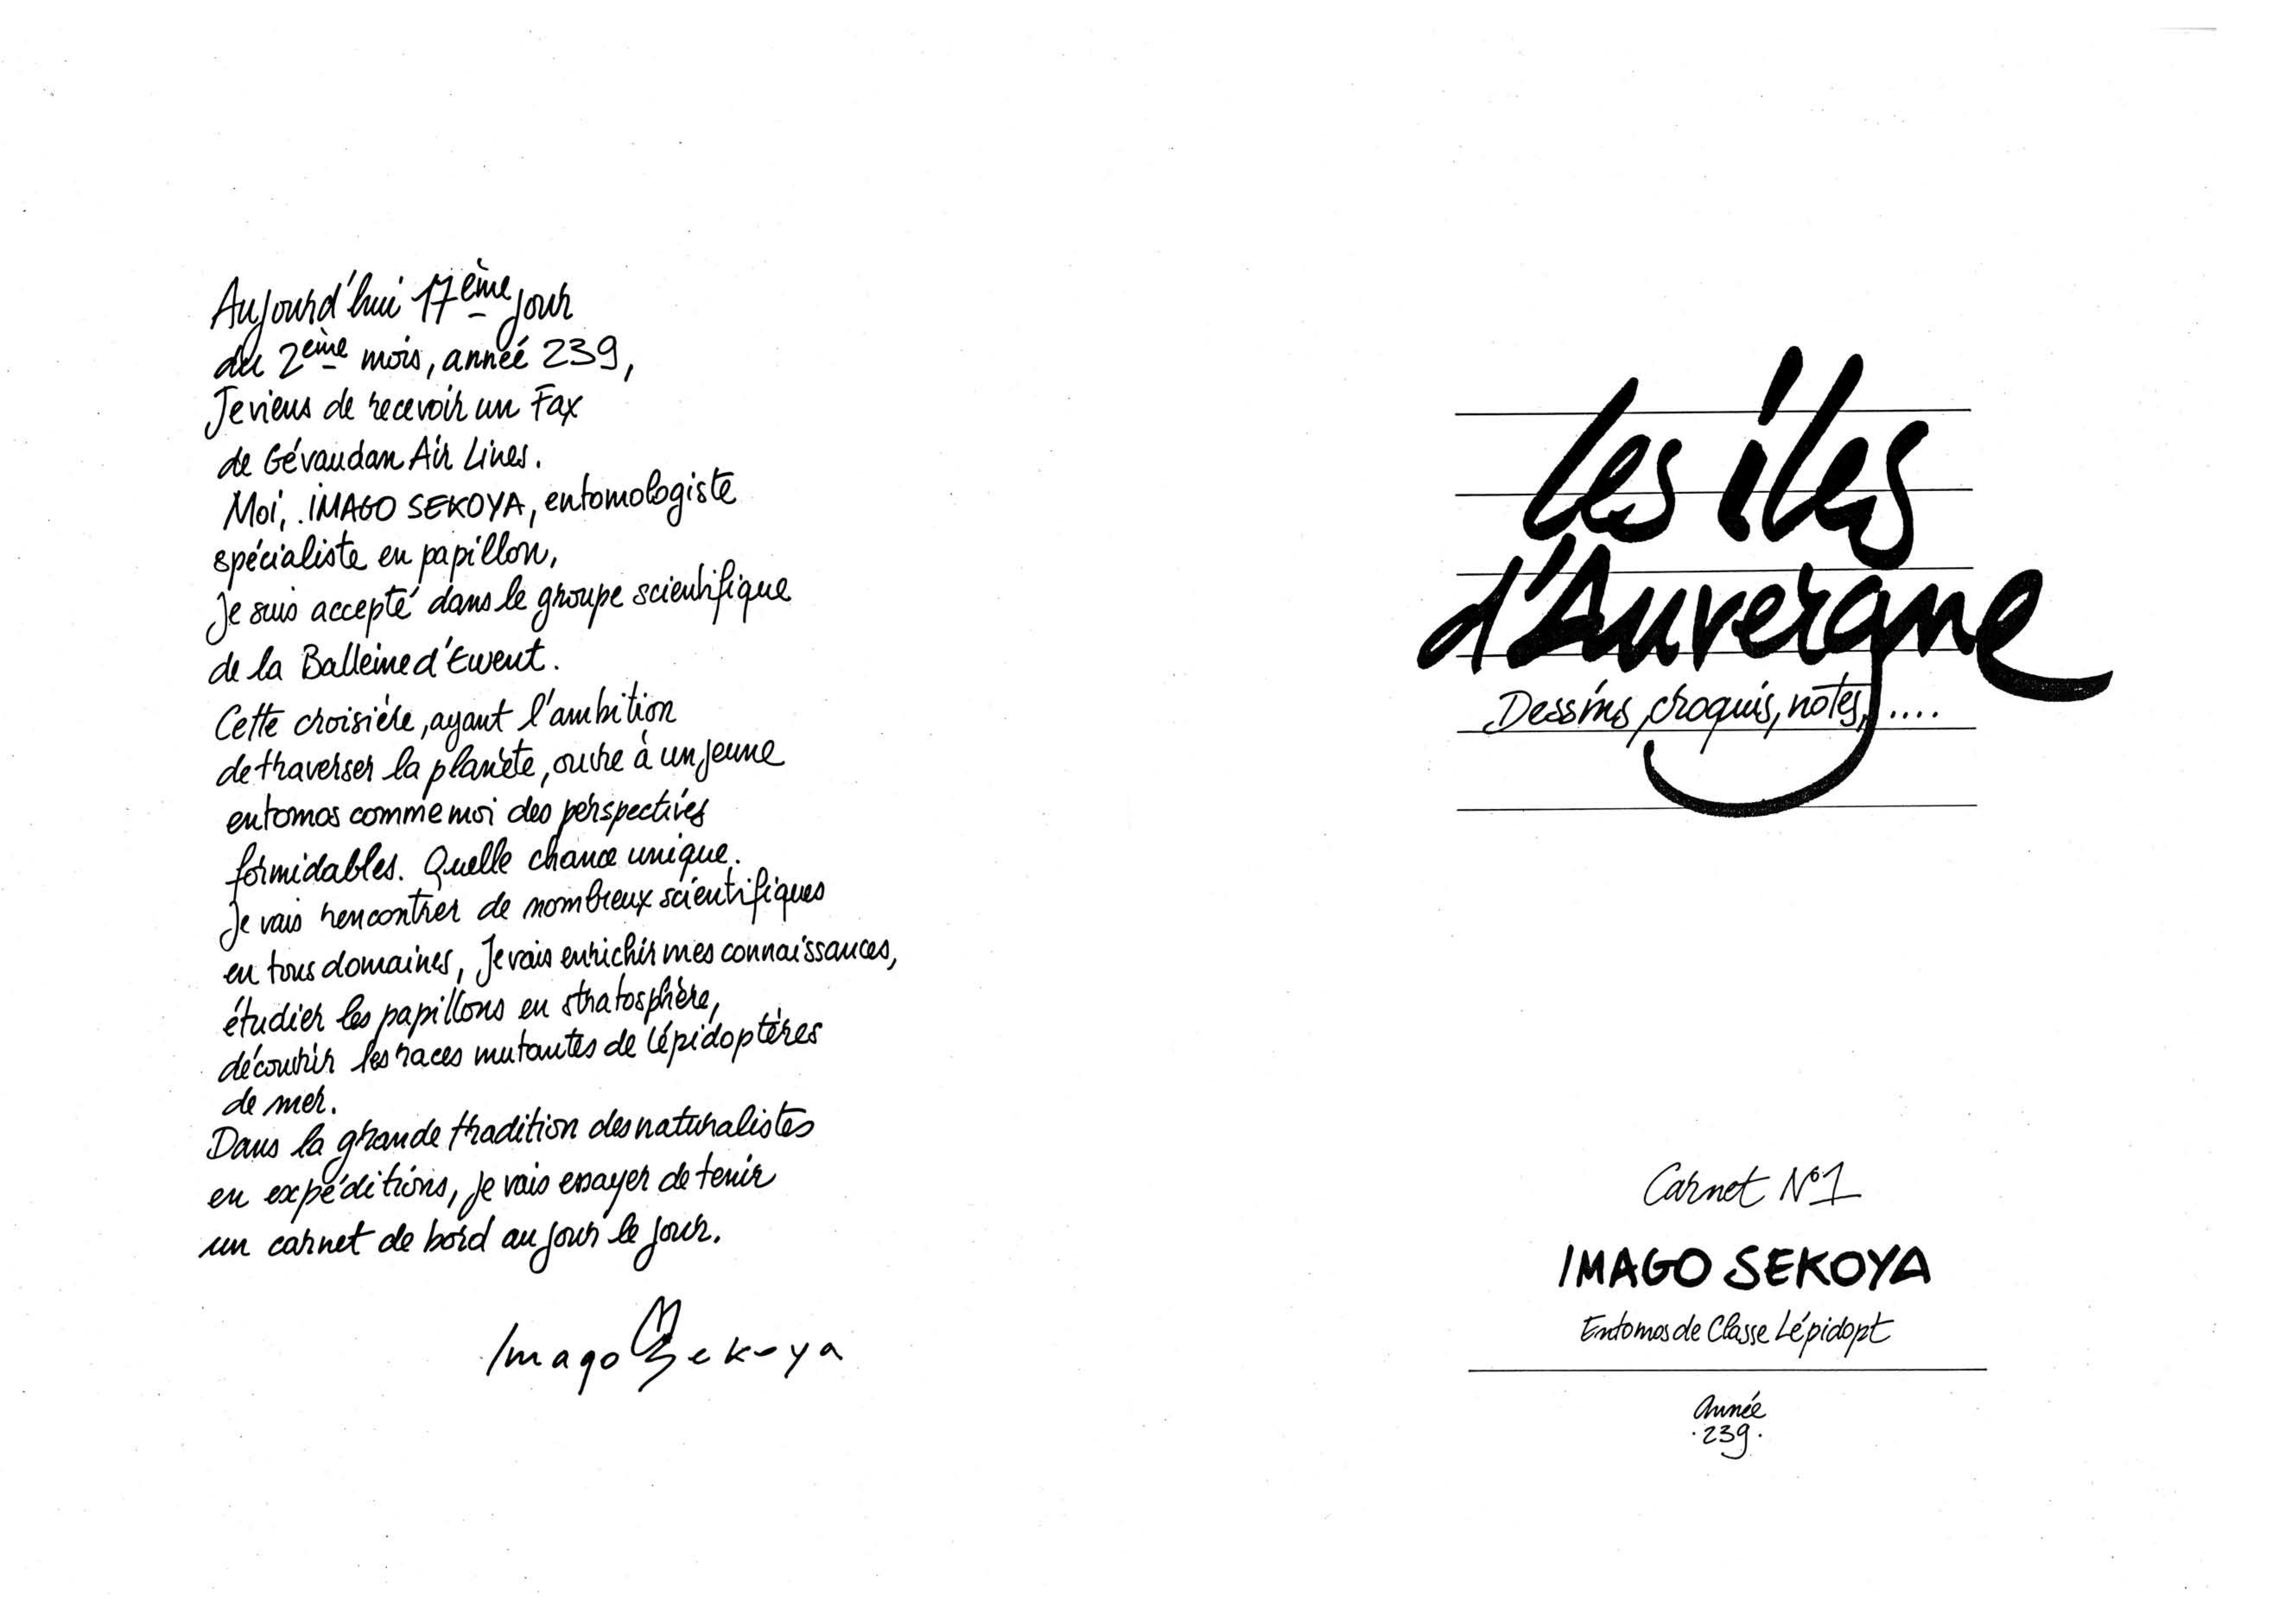 Aujourd'hui 17ème jour
du 2ème mois, année 239,
Je viens de recevoir un Fax
de Gévaudan Air Lines.
Moi, IMAGO SEKOYA, entomologiste
spécialiste en papillon,
je suis accepté dans le groupe scientifique
de la Balleine d'Ewent.
Cette croisière, ayant l'ambition
de traverser la planète, ouvre à un jeune
entomos comme moi des perspectives
formidables. Quelle chance unique.
Je vais rencontrer de nombreux scientifiques
en tous domaines, Je vais enrichir mes connaissances,
étudier les papillons en stratosphère,
découvrir les races mutantes de lépidoptères
de mer.
Dans la grande tradition des naturalistes
en expéditions, je vais essayer de tenir
un carnet de bord au jour le jour.
Imago Sekoya
Les îles
d'Auvergne
Dessins, croquis, notes, ....
Carnet N°1
IMAGO SEKOYA
Entomos de Classe Lépidopt
Année
.239.